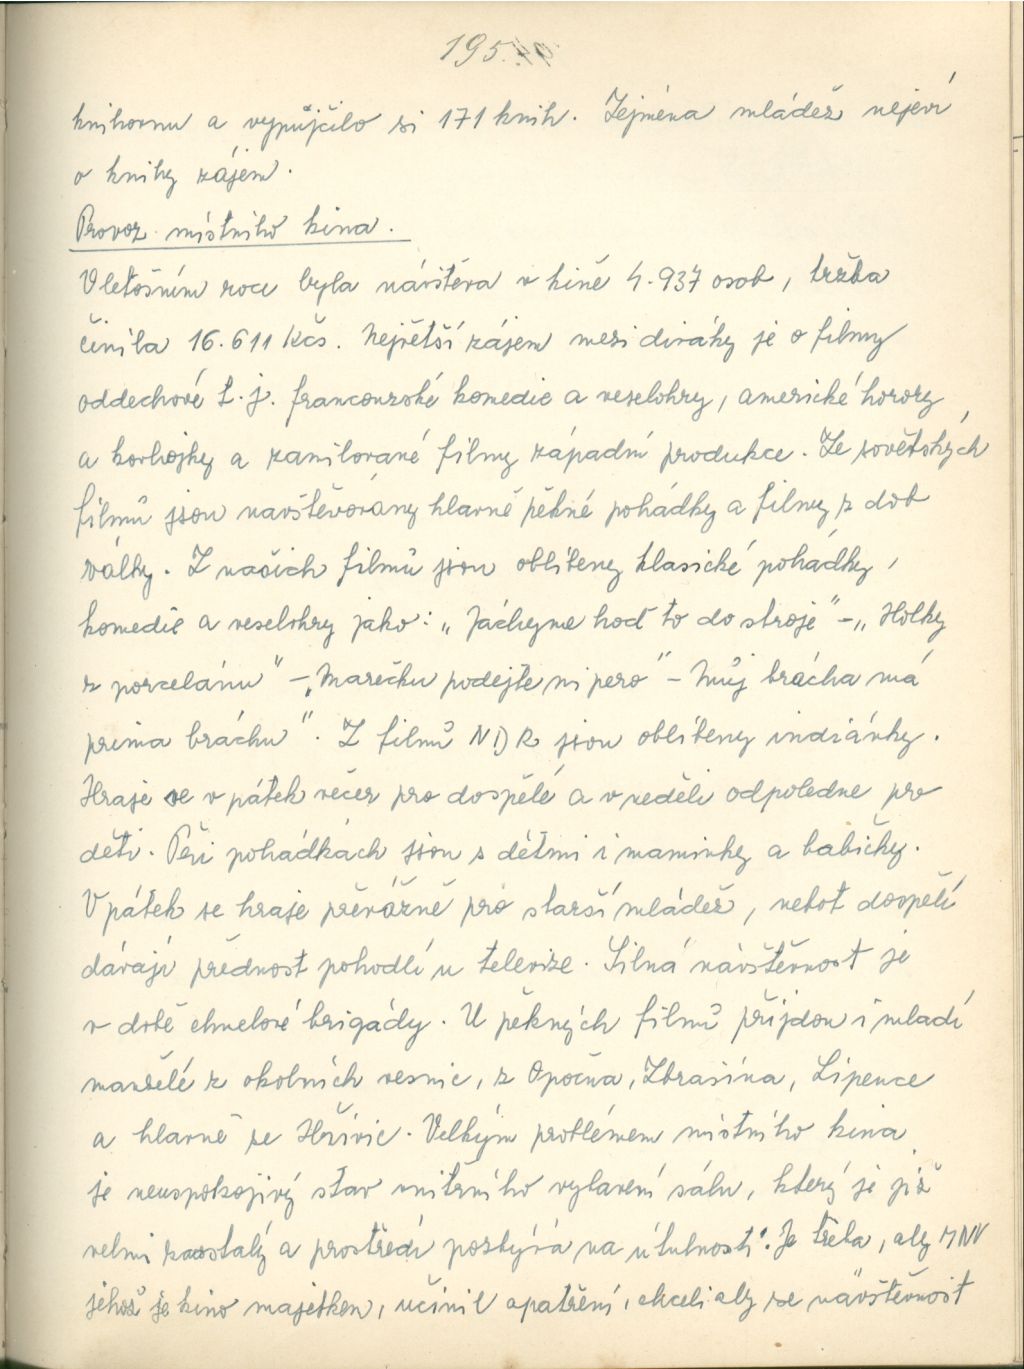 195.
knihovnu a vypůjčilo si 171 knih. Zejména mládež nejeví
o knihy zájem.
Provoz místního kina.
V letošním roce byla návštěva v kině 4.937 osob, tržba
činila 16.611 Kčs. Největší zájem mezi diváky je o filmy
oddechové t.j. francouzské komedie a veselohry, americké horory
a kovbojky a zamilované filmy západní produkce. Ze sovětských
filmů jsou navštěvovány hlavně pěkné pohádky a filmy z dob
války. Z našich filmů jsou oblíbeny klasické pohádky,
komedie a veselohry jako: „Jáchyme hoď to do stroje" - „Holky
z porcelánu" - „Marečku podejte mi pero" - Můj brácha má
prima bráchu". Z filmů NDR jsou oblíbeny indiánky.
Hraje se v pátek večer pro dospělé a v neděli odpoledne pro
děti. Při pohádkách jsou s dětmi i maminky a babičky.
V pátek se hraje převážně pro starší mládež, neboť dospělí
dávají přednost pohodlí u televize. Silná návštěvnost je
v době chmelové brigády. U pěkných filmů přijdou i mladí
manželé z okolních vesnic, z Opočna, Zbrašína, Lipence
a hlavně ze Hřivic. Velkým problémem místního kina
je neuspokojivý stav vnitřního vybavení sálu, který je již
velmi zastalý a prostředí pozbývá na útulnosti. Je třeba, aby MNV
jehož je kino majetkem, učinil opatření, chceli aby se návštěvnost